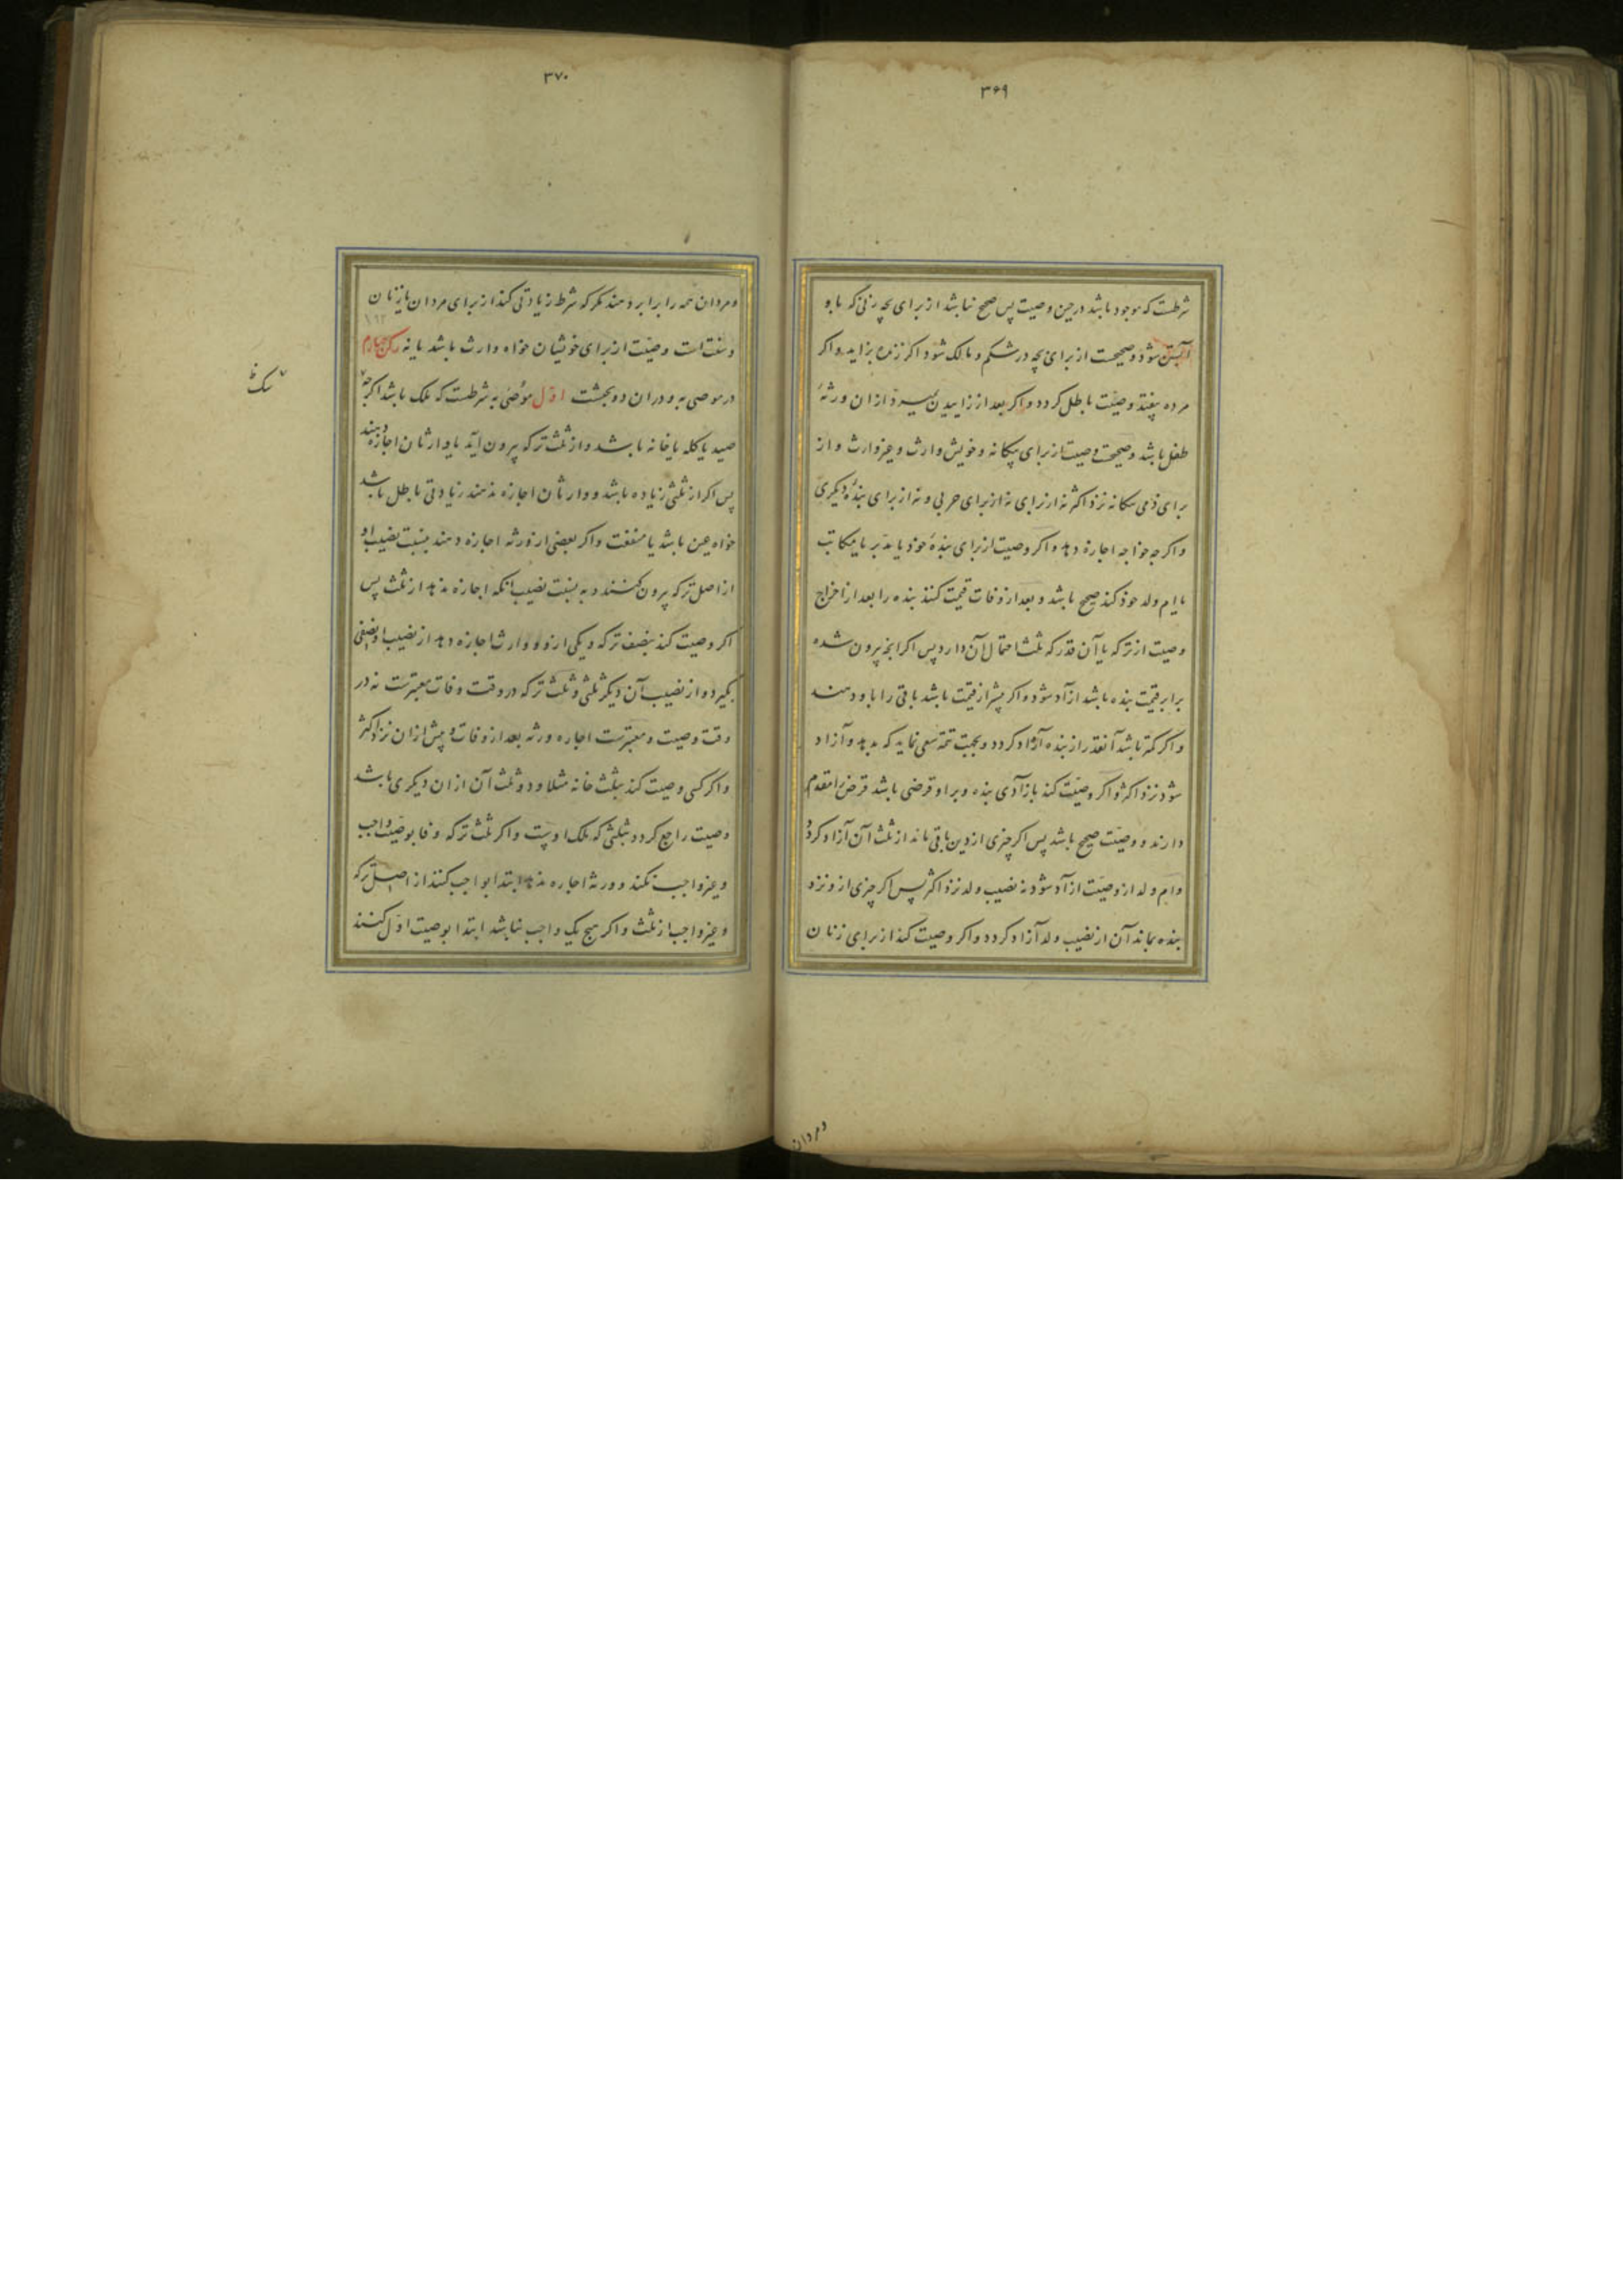 ۳۶۹
شرطست که موجود باشد در حین وصیت پس صحیح نباشد از برای بچه زنی که باو
آبستن شود و صحیحست از برای بچه در شکم و مالک شود اکر زنده بزاید و اکر
مرده بیفتد وصیّت باطل کردد و اکر بعد از زاییدن بمیرد از ان ورثهٔ
طفل باشد و صحیحست وصیت از برای بیکانه و خویش وارث و غیر وارث و از
برای ذمی بیکانه نزد اکثر نه از برای حربی و نه از برای بندهٔ دیکری
و اکرجه خواجه اجازه دهد و اکر وصیت از برای بندهٔ خود یا مدبر یا مکاتب
یا ام ولد خود کند صحیح باشد و بعد از وفات قیمت کنند بنده را بعد از اخراج
وصیت از ترکه یا آن قدر که ثلث احتمال آن دارد پس اکر انجه بیرون شده
برابر قیمت بنده باشد ازاد شود و اکر بیشتر از قیمت باشد باقی را باو دهند
و اکر کمتر باشد آنقدر از بنده آزاد کردد و بجهت تتمه سعی نماید که بدهد و آزاد
شود نزد اکثر و اکر وصیّت کند بازادی بنده و بر او قرضی باشد قرض را مقدم
دارند و وصیّت صحیح باشد پس اکر چیزی از دین باقی ماند از ثلث آن آزاد کردد
و ام ولد از وصیّت ازاد شود نه نصیب ولد نزد اکثر پس اکر چیزی از و نزد
بنده بماند آن از نصیب ولد آزاد کردد و اکر وصیت کند از برای زنان
ومردان
۳۷۰
و مردان همه را برابر دهند مکر که شرط زیادتی کند از برای مردان یا زنان
و سنت است وصیّت از برای خویشان خواه وارث باشد یا نه رکن چهارم
در موصی به و دران دو بحثست اوّل موصٰی به شرطست که ملک باشد اکرچه
صید یا کله یا خانه باشد و از ثلث ترکه بیرون آید یا وارثان اجازه دهند
پس اکر از ثلثی زیاده باشد و وارثان اجازه ندهند زیادتی باطل باشد
خواه عین باشد یا منفعت و اکر بعضی از ورثه اجازه دهند بنسبت نصیب او
از اصل ترکه بیرون کنند و به نسبت نصیب انکه اجازه ندهد از ثلث پس
اکر وصیت کند بنصف ترکه و یکی از دو وارث اجازه دهد از نصیب او نصفی
بکیرد و از نصیب آن دیکر ثلثی و ثلث ترکه در وقت وفات معتبرست نه در
وقت وصیت و معتبرست اجازه ورثه بعد از وفات و پیش از ان نزد اکثر
و اکر کسی وصیت کند بثلث خانه مثلا و دو ثلث آن از ان دیکری باشد
وصیت راجع کردد بثلثی که ملک اوست و اکر ثلث ترکه وفا بوصیّت واجب
و غیر واجب نکند و ورثه اجازه ندهند ابتدا بواجب کنند از اصل ترکه
و غیر واجب از ثلث و اکر هیج یک واجب نباشد ابتدا بوصیت اوّل کنند